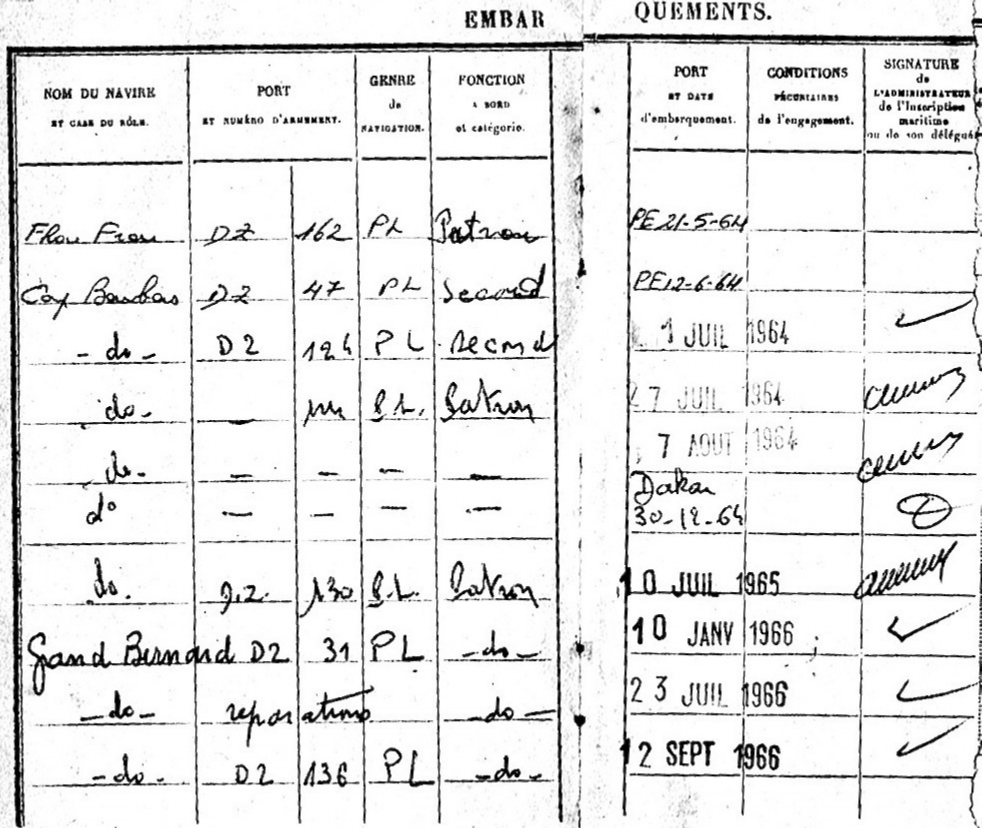 EMBARQUEMENTS.
NOM DU NAVIRE ET CASE DU RÔLE. | PORT ET NUMÉRO D'ARMEMENT. | GENRE de NAVIGATION. | FONCTION A BORD et catégorie. | PORT ET DATE d'embarquement. | CONDITIONS PÉCUNIAIRES de l'engagement. | SIGNATURE de L'ADMINISTRATEUR de l'Inscription maritime ou de son délégué
Frou Frou DZ 162 PL Patron PE 21-5-64
Cap Barbas DZ 47 PL Second PE 12-6-64
-do- DZ 124 PL Second 1 JUIL 1964
-do- — P.L. Patron 27 JUIL 1964
-do- — — — — 7 AOUT 1964
do — — — — Dakar 30-12-64
do. DZ. 130 P.L. Patron 10 JUIL 1965
Grand Bernard DZ 31 PL -do- 10 JANV 1966
-do- reparations -do- 23 JUIL 1966
-do- DZ 136 PL -do- 12 SEPT 1966